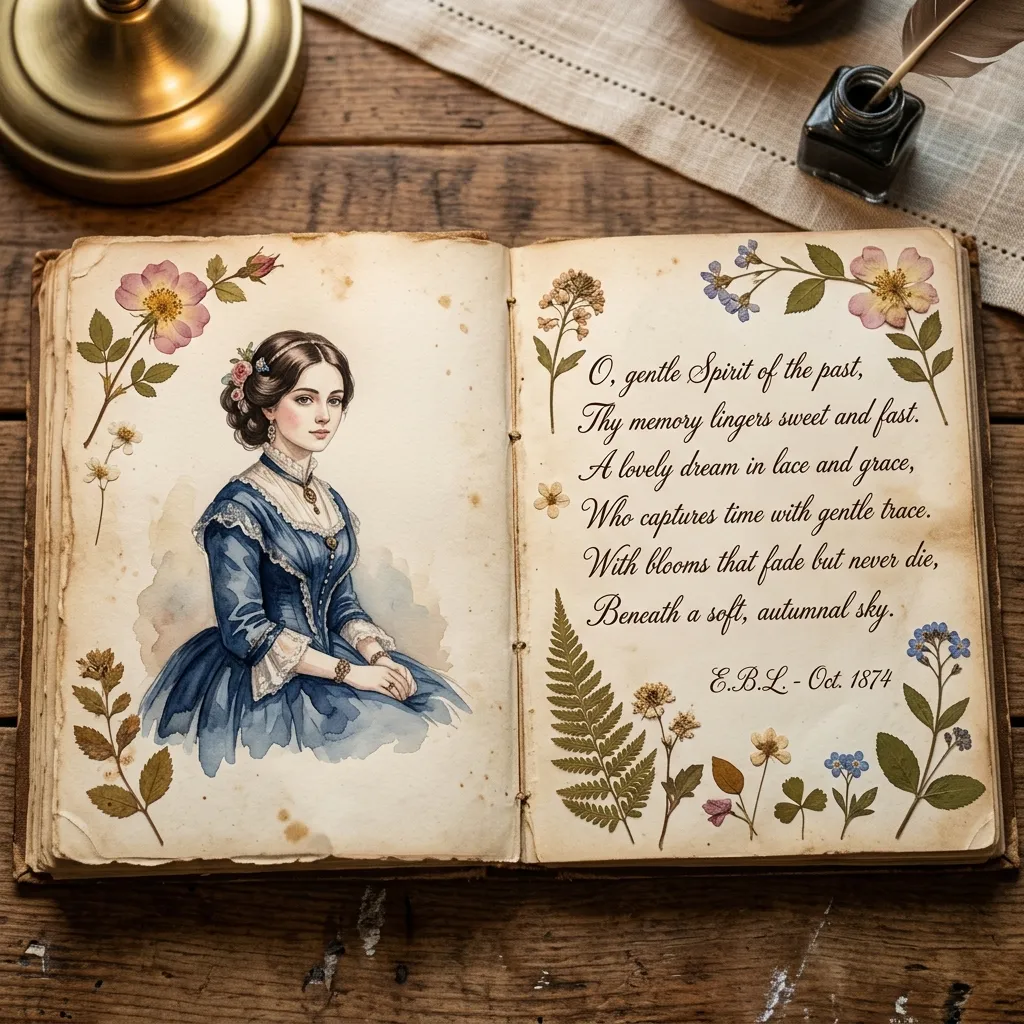 O, gentle Spirit of the past,
Thy memory lingers sweet and fast.
A lovely dream in lace and grace,
Who captures time with gentle trace.
With blooms that fade but never die,
Beneath a soft, autumnal sky.
E.B.L. - Oct. 1874